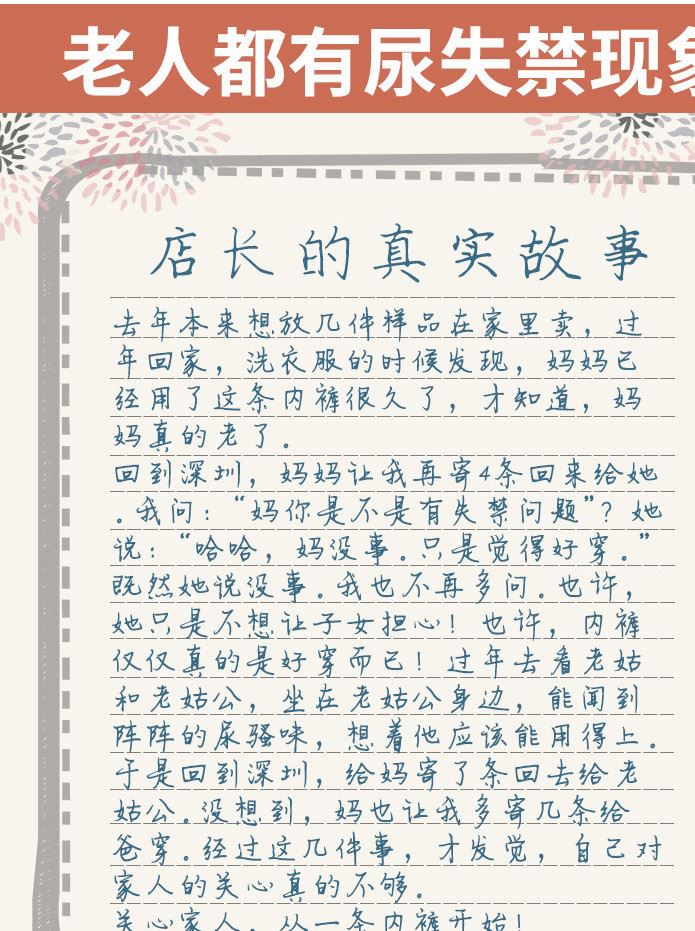 老人都有尿失禁现象
店长的真实故事
去年本来想放几件样品在家里卖，过
年回家，洗衣服的时候发现，妈妈已
经用了这条内裤很久了，才知道，妈
妈真的老了。
回到深圳，妈妈让我再寄4条回来给她
。我问：“妈你是不是有失禁问题”？她
说：“哈哈，妈没事。只是觉得好穿。”
既然她说没事。我也不再多问。也许，
她只是不想让子女担心！也许，内裤
仅仅真的是好穿而已！过年去看老姑
和老姑公，坐在老姑公身边，能闻到
阵阵的尿骚味，想着他应该能用得上。
于是回到深圳，给妈寄了条回去给老
姑公。没想到，妈也让我多寄几条给
爸穿。经过这几件事，才发觉，自己对
家人的关心真的不够。
关心家人，从一条内裤开始！